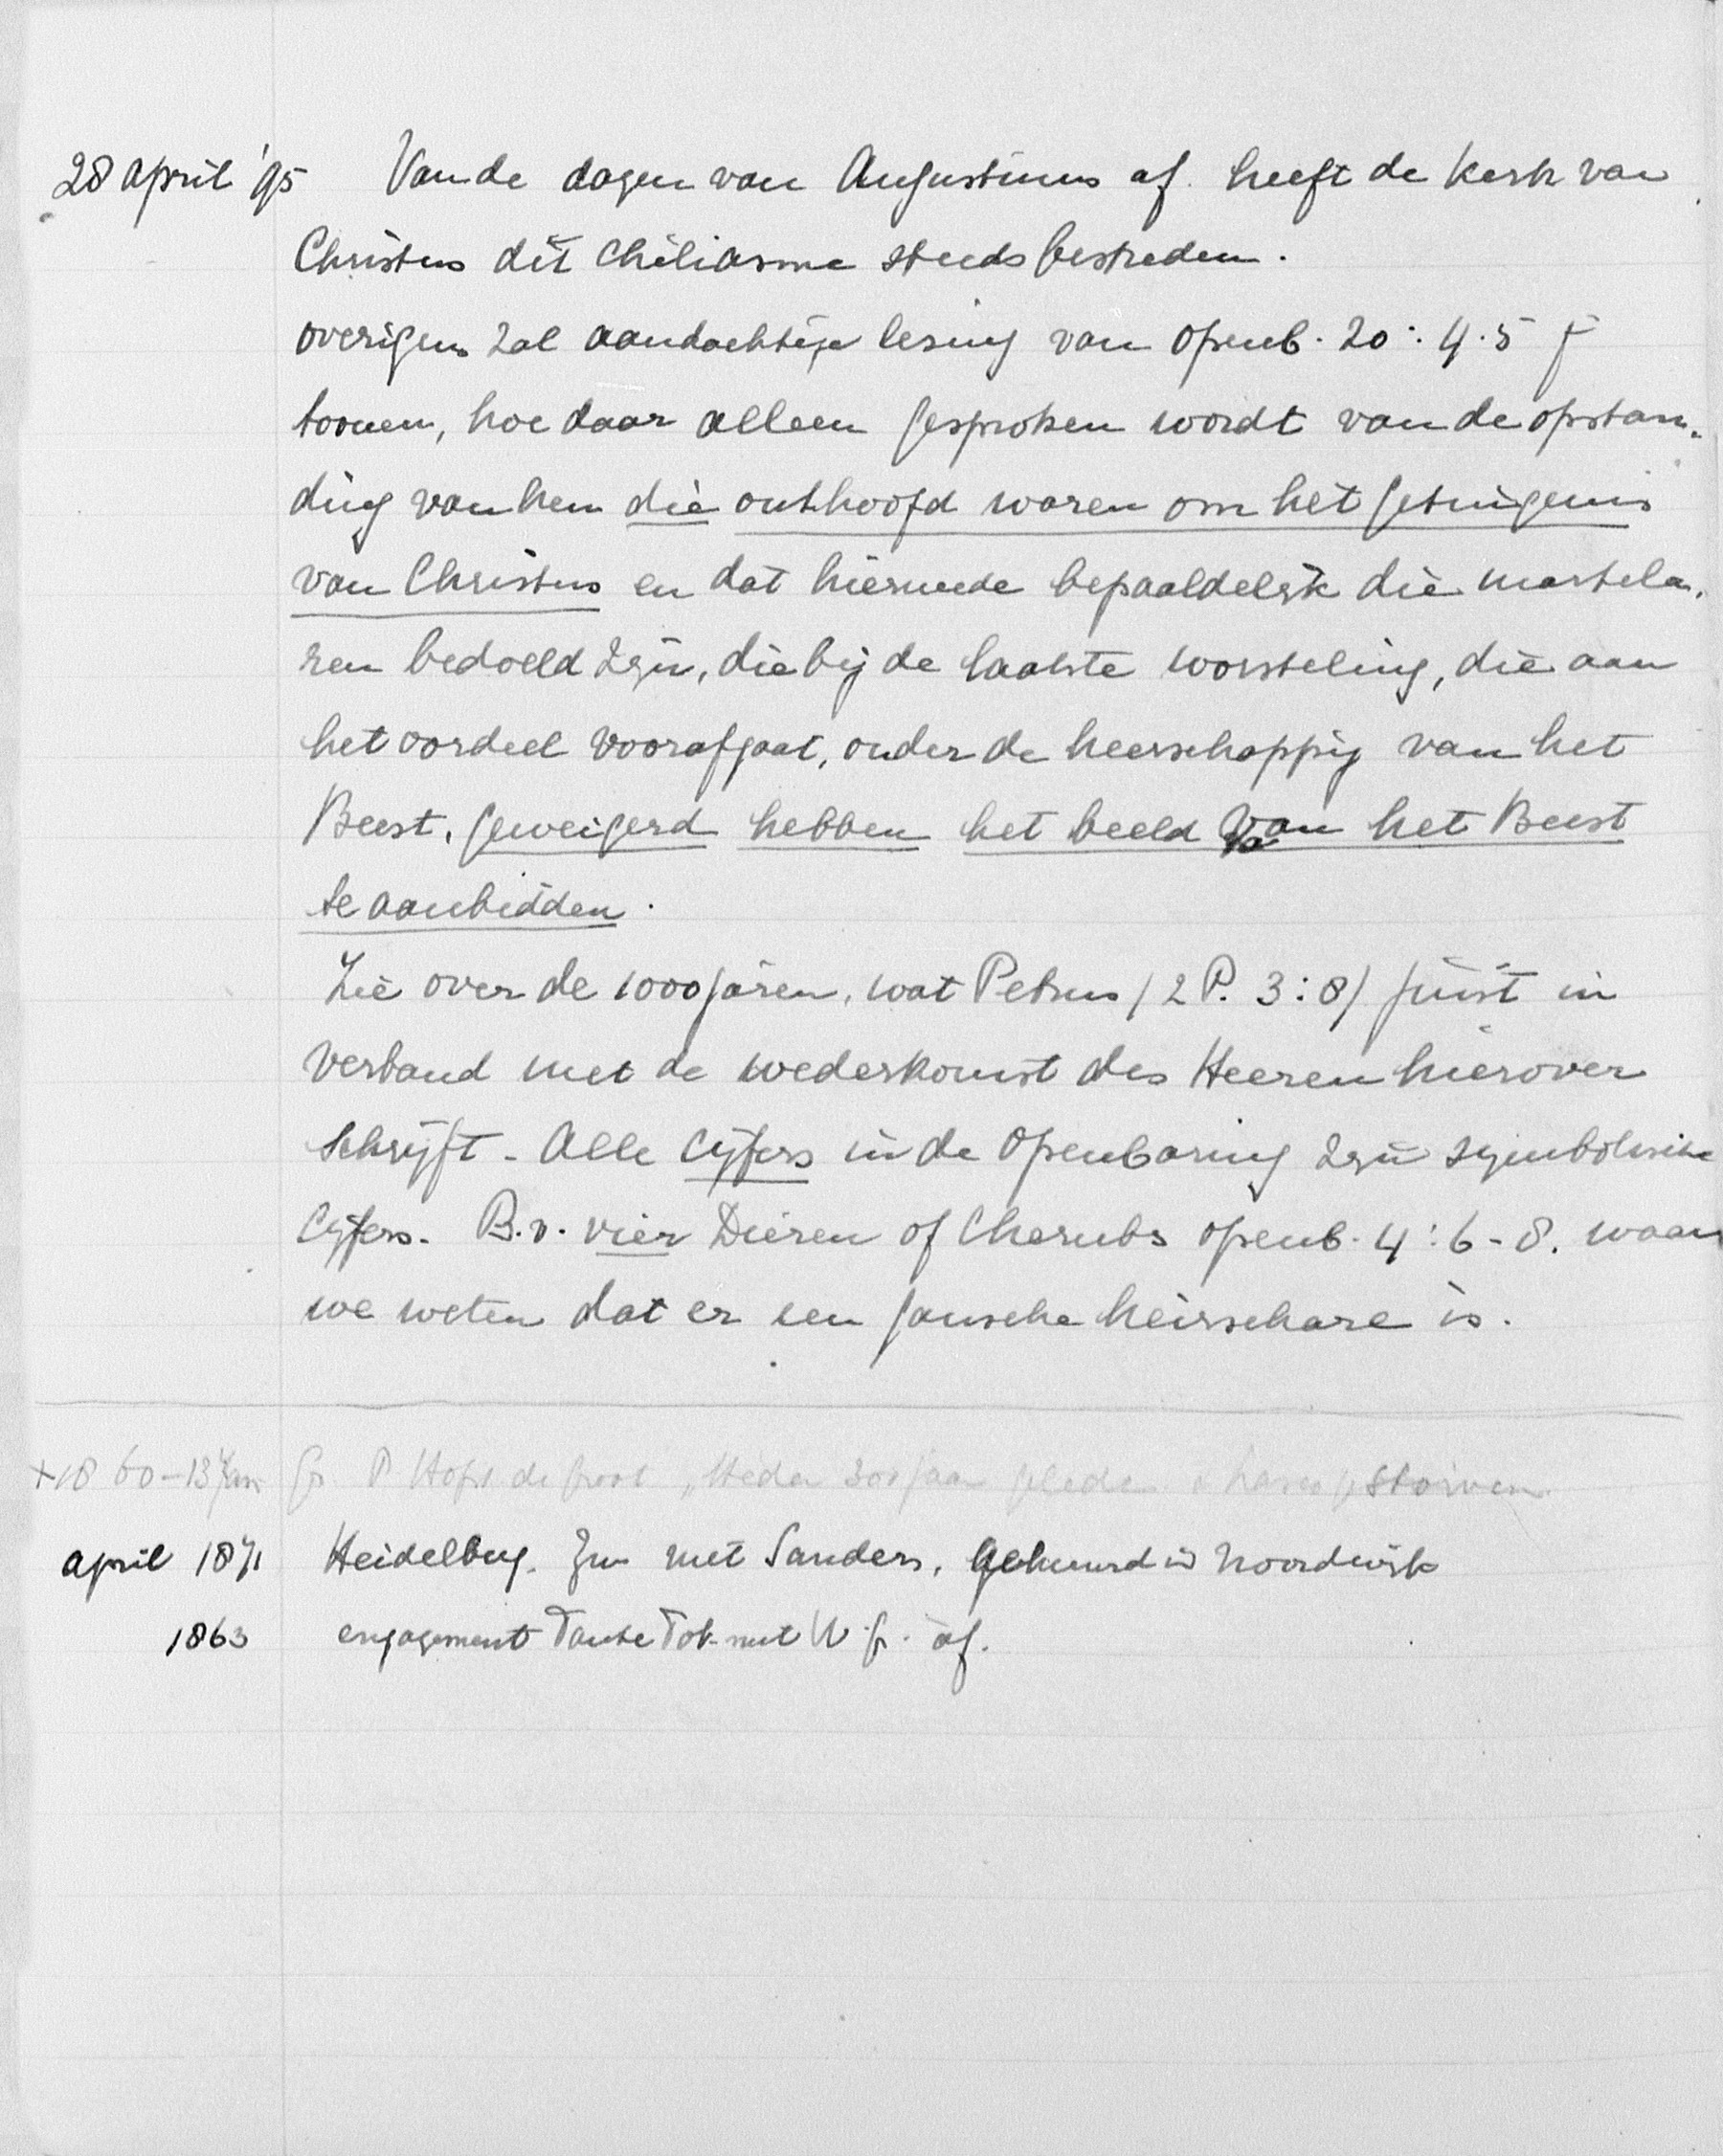 28 april '95 Van de dagen van Augustinus af heeft de Kerk van
Christus dit Chiliasme steeds bestreden.
overigens zal aandachtige lezing van Openb. 20: 4.5
toonen, hoe daar alleen gesproken wordt van de opstan-
ding van hen die onthoofd waren om het getuigenis
van Christus en dat hiermede bepaaldelijk die martela-
ren bedoeld zijn, die bij de laatste worsteling, die aan
het oordeel voorafgaat, onder de heerschappij van het
Beest, geweigerd hebben het beeld van het Beest
te aanbidden.
Zie over de 1000 jaren, wat Petrus / 2 P. 3:8/ juist in
verband met de wederkomst des Heeren hierover
schrijft - Alle cijfers in de Openbaring zijn symbolische
cijfers. B.v. vier Dieren of Cherubs openb. 4:6-8. waar
we weten dat er een gansche heirschare is.
+18 60-13 Jan P Hofst de Groot 300 jaar
april 1871 Heidelberg. met Sanders, gehuurd in Noordwijk
1863 engagement Tante met W. G. af.